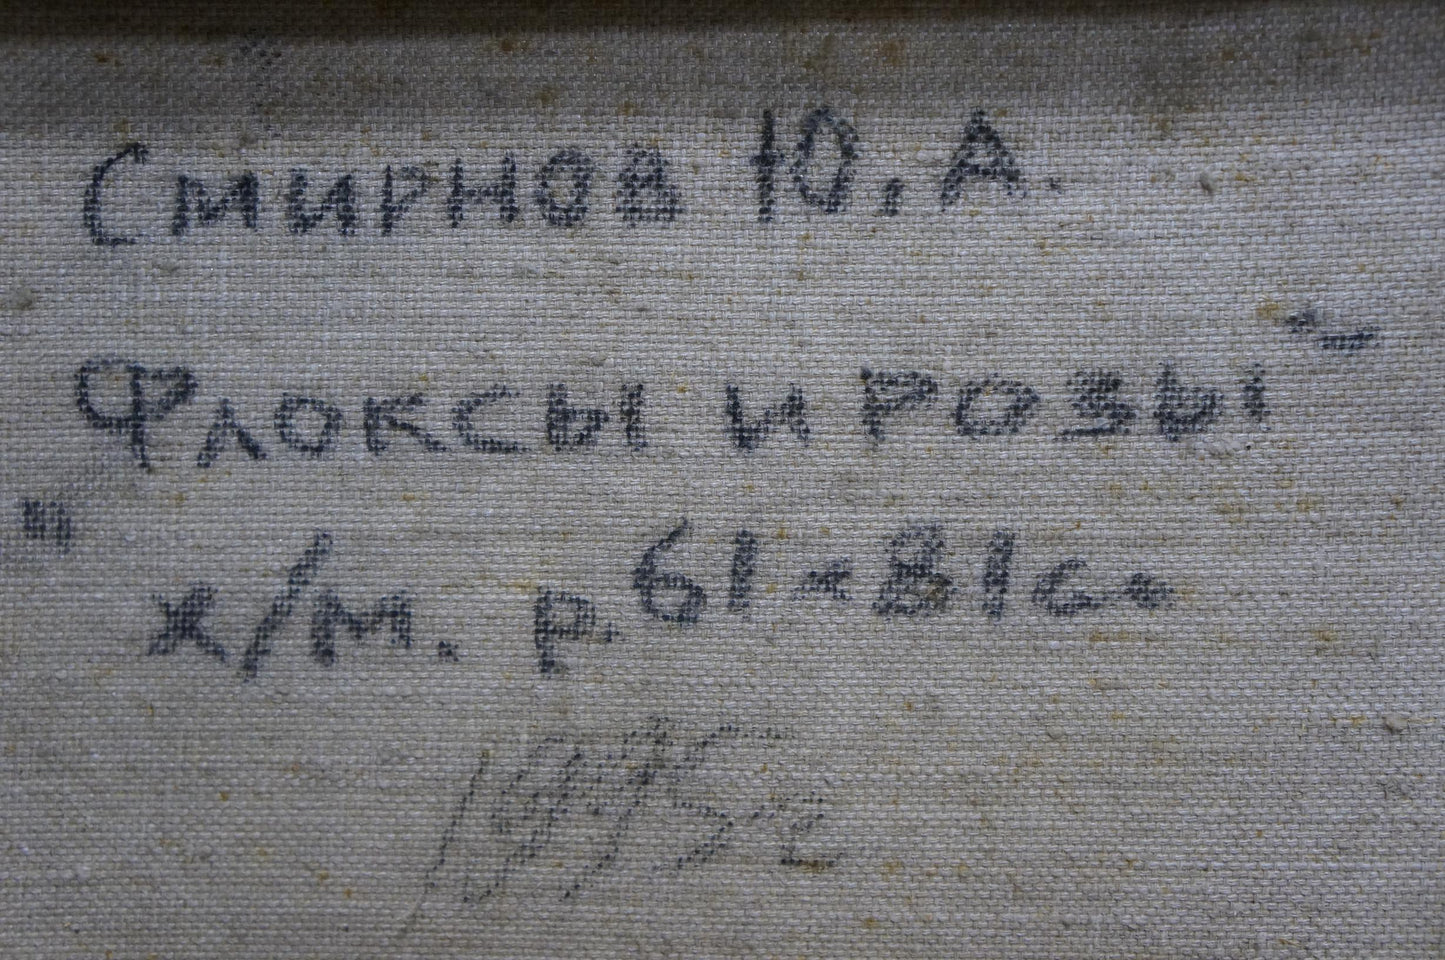 Смирнов Ю, А.
Флоксы и розы"
" х/м. р. 61-81см
1995г